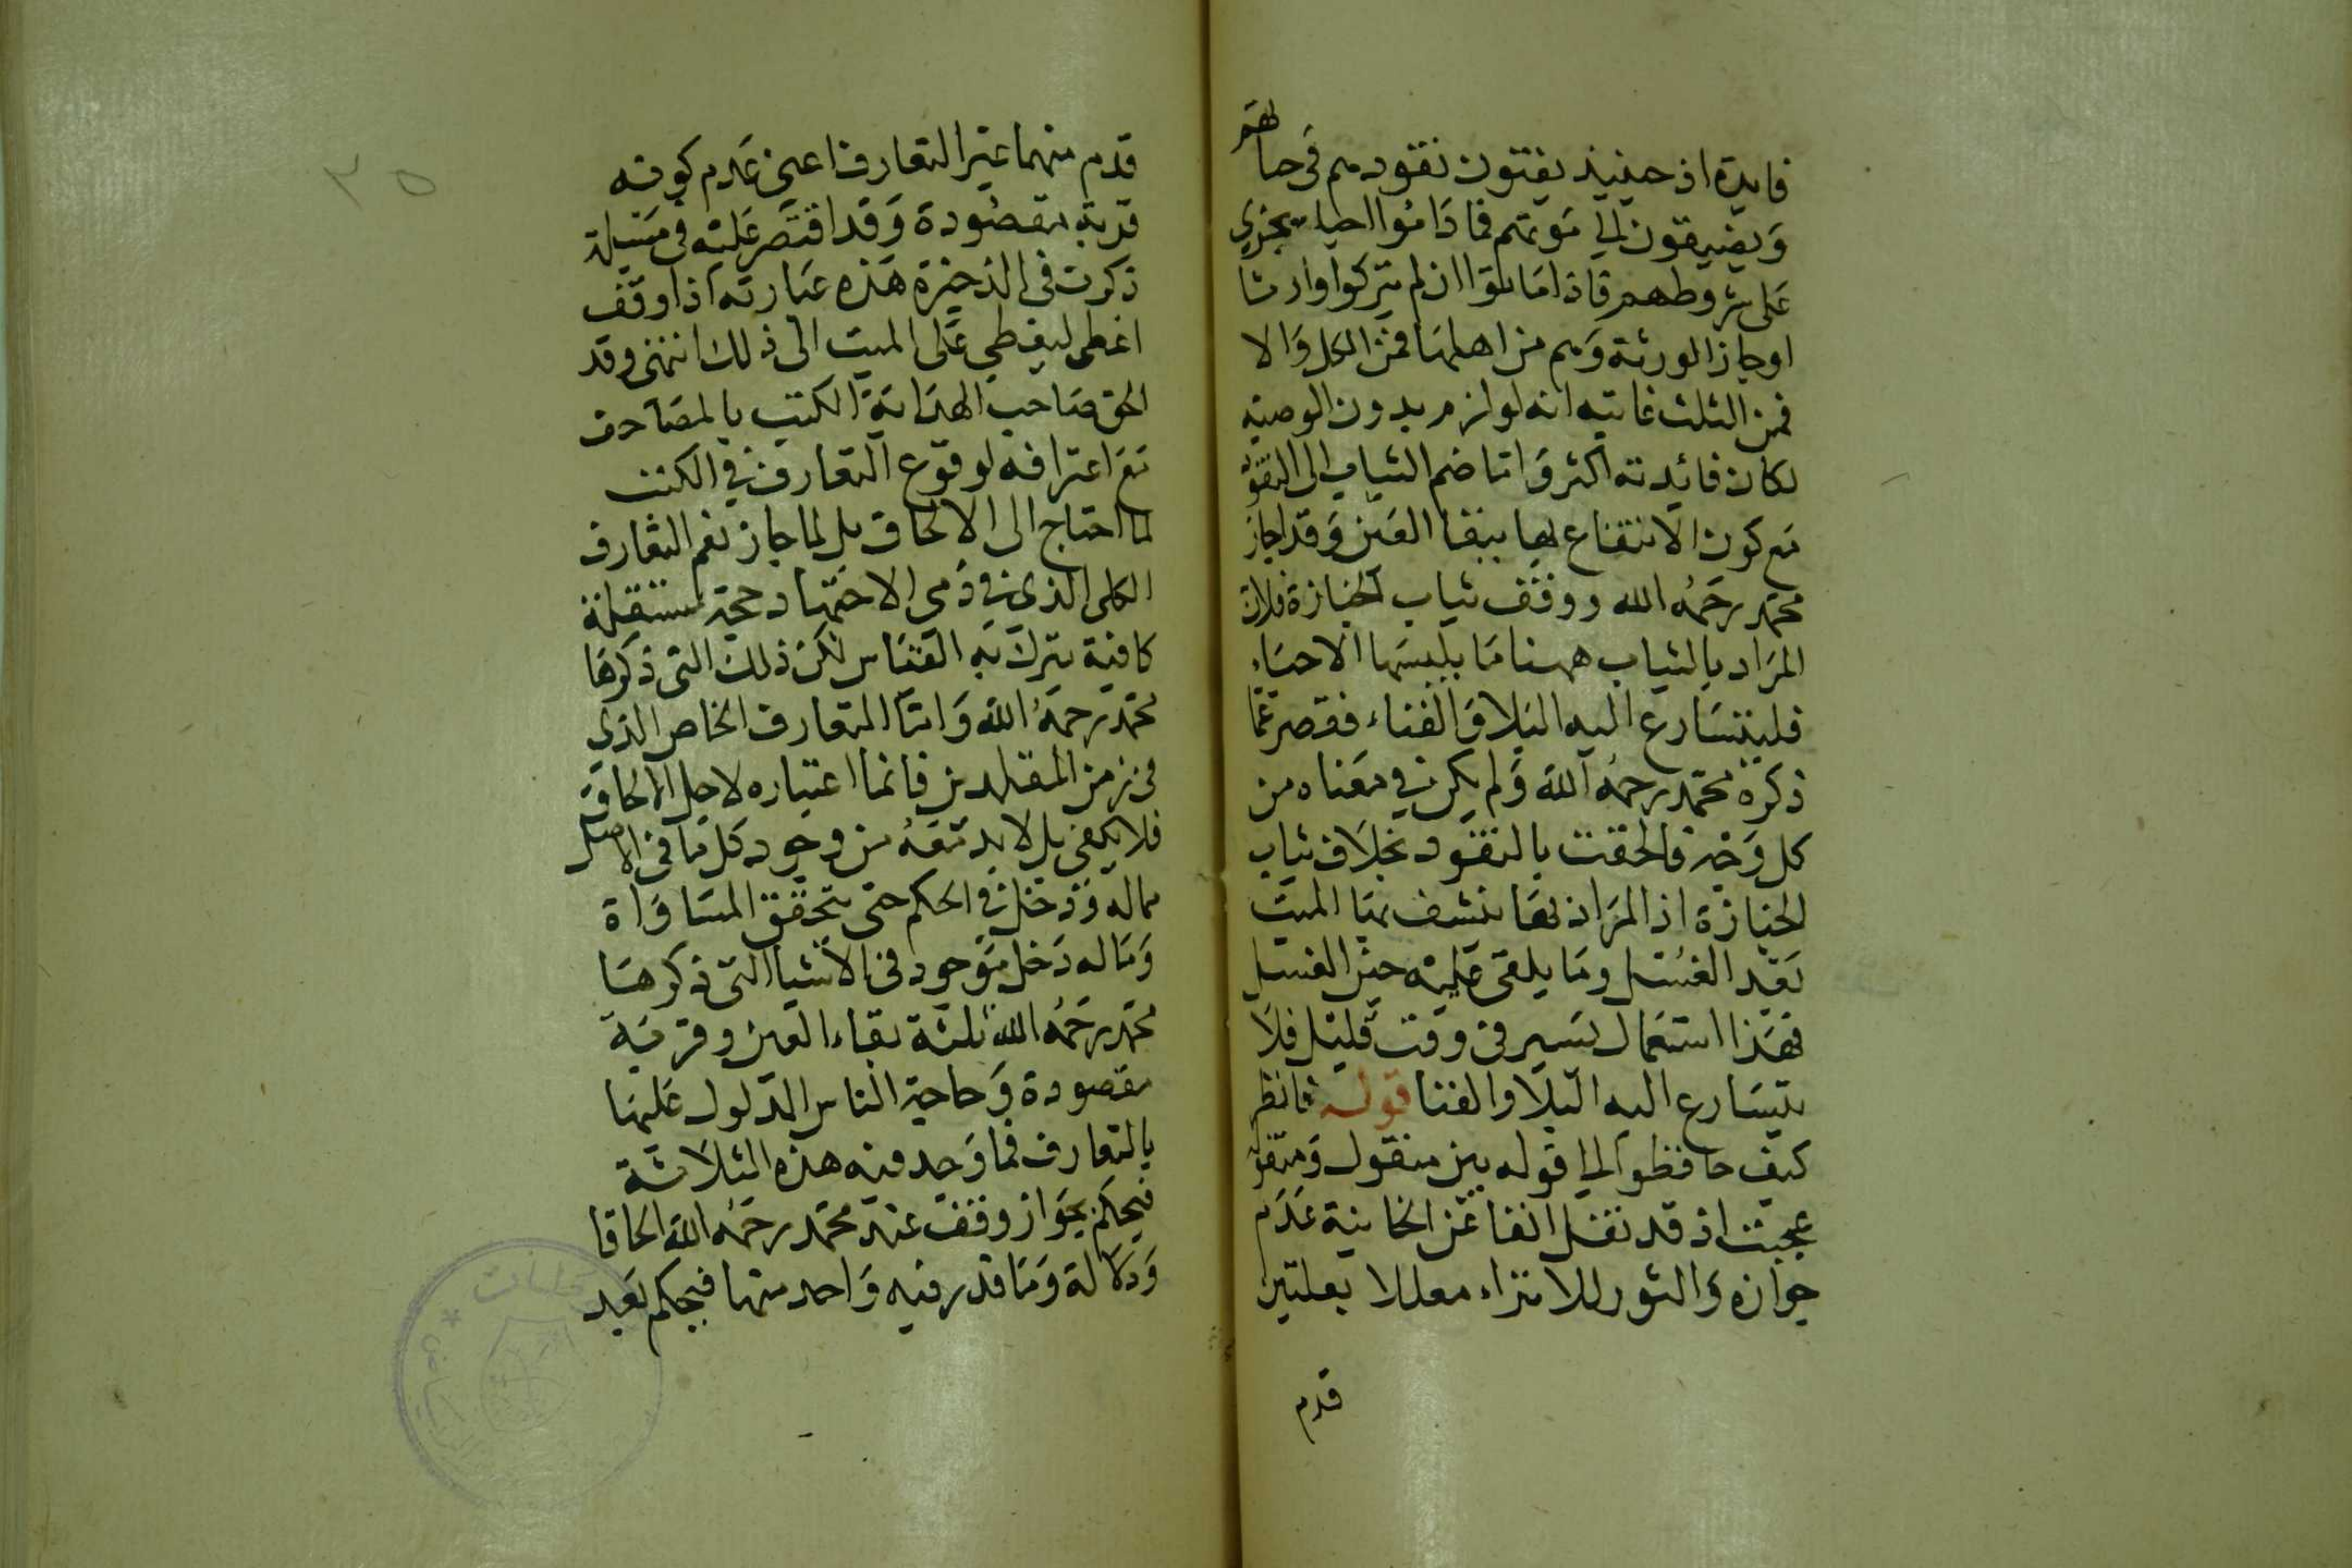 فايدة اذ حينيذ يفتون نقودهم في حياتهم
ويضيفون الى موتهم فما داموا احياء يجري
على شروطهم فاذا ماتوا ان لم يتركوا وارثا
اوجاز الورثة وهم من اهلها فمن الكل والا
فمن الثلث غايته انه لو لزم بدون الوصية
لكان فائدته اكثر واما ضم الثياب الى النقود
مع كون الانتفاع بها ببقا العين وقد اجاز
محمد رحمه الله ووقف ثياب الجنازة فلان
المراد بالثياب ههنا ما يلبسها الاحياء
فليتسارع اليه البلا والفناء فقصر عما
ذكره محمد رحمه الله ولم يكن في معناه من
كل وجه فالحقت بالنقود بخلاف ثياب
الجنازة اذ المراد بها ينشف بها الميت
بعد الغسل وما يلقى عليه حين الغسل
فهذا استعمال يسير في وقت قليل فلا
يتسارع اليه البلا والفنا قوله فانظر
كيف حافظوا الى قوله بين منقول ومنقول
عجيب اذ قد نقل انفا عن الخانية عدم
جوازه والثور للانزاء معللا بعلتين
قدم
٣٥
قدم منهما عير التعارف اعني عدم كونه
قربة مقصودة وقد اقتصر عليه في مسيلة
ذكرت في الذخيرة هذه عبارته اذا وقف
اغطى ليغطي على الميت الى ذلك انتهى وقد
الحق صاحب الهداية الكتب بالمصاحف
مع اعترافه لوقوع التعارف في الكتب
لما احتاج الى الالحاق بل لما جاز نعم التعارف
الكلى الذي في زمن الاجتهاد حجة مستقلة
كافية يترك به القياس لكن ذلك التى ذكرها
محمد رحمه الله واما التعارف الخاص الذي
في زمن المقلدين فانما اعتباره لاجل الالحاق
فلا يكفي بل لا بد معه من وجود كل ما في الاصل
مماله دخل في الحكم حتى يتحقق المساواة
وماله دخل موجود في الاشيا التى ذكرها
محمد رحمه الله ثلثة بقاء العين وقربة
مقصودة وحاجة الناس المدلول عليها
بالتعارف فما وجد فيه هذه الثلاثة
فيحكم بجواز وقف عند محمد رحمه الله الحاقا
ودلالة وما قدر فيه واحد منها فيحكم بعيد